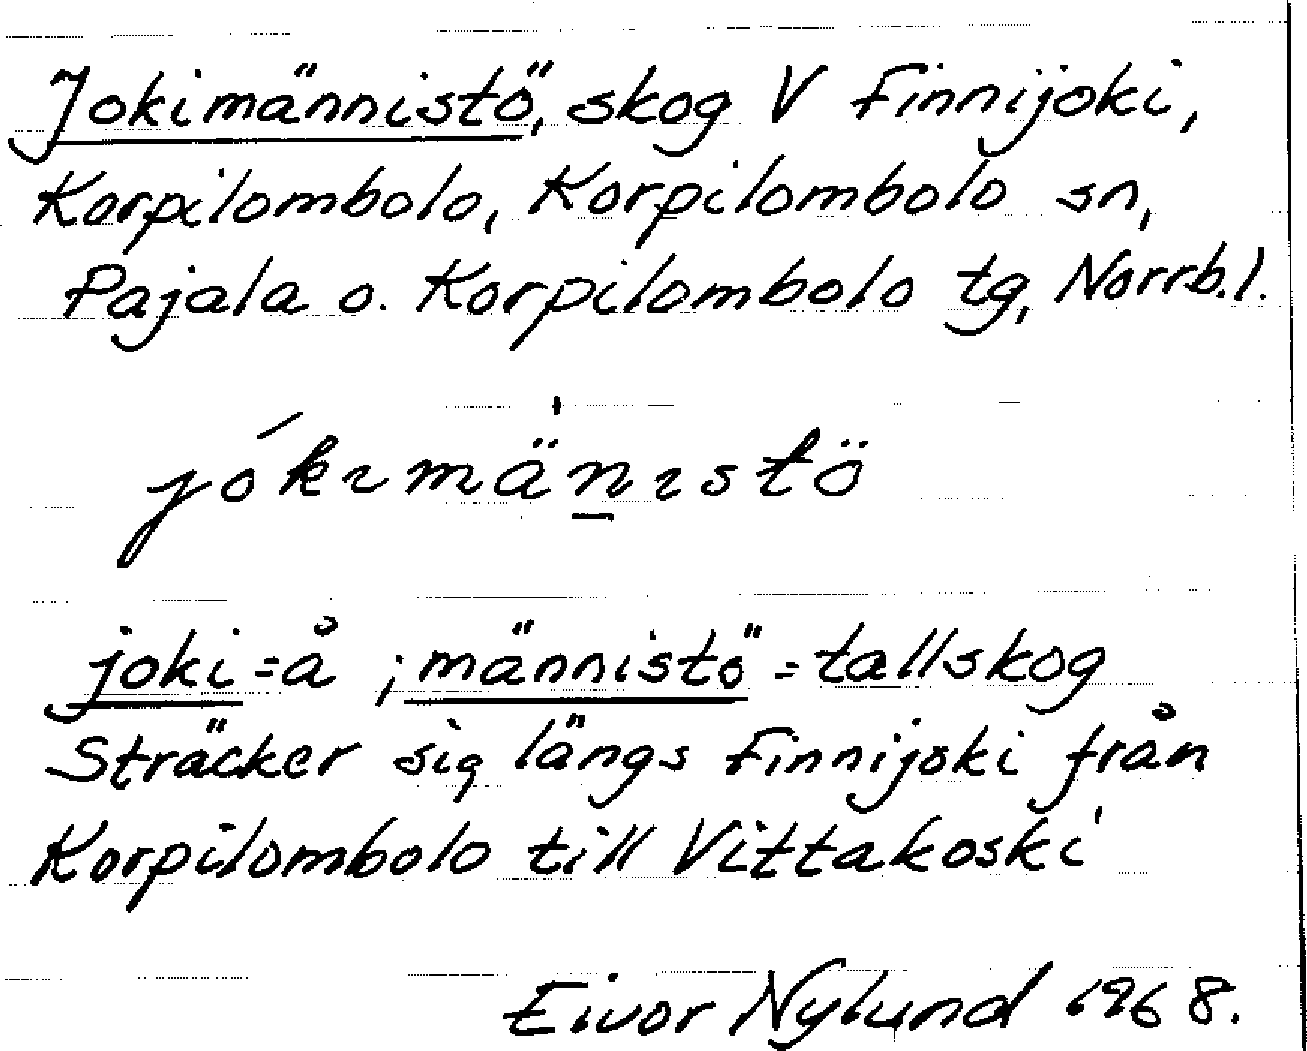 Jokimännistö, skog V Finnijoki,
Korpilombolo, Korpilombolo sn,
Pajala o. Korpilombolo tg, Norrb.l.
jókımän̲ıstö
joki = å ; männistö = tallskog
Sträcker sig längs Finnijoki från
Korpilombolo till Vittakoski
Eivor Nylund 1968.